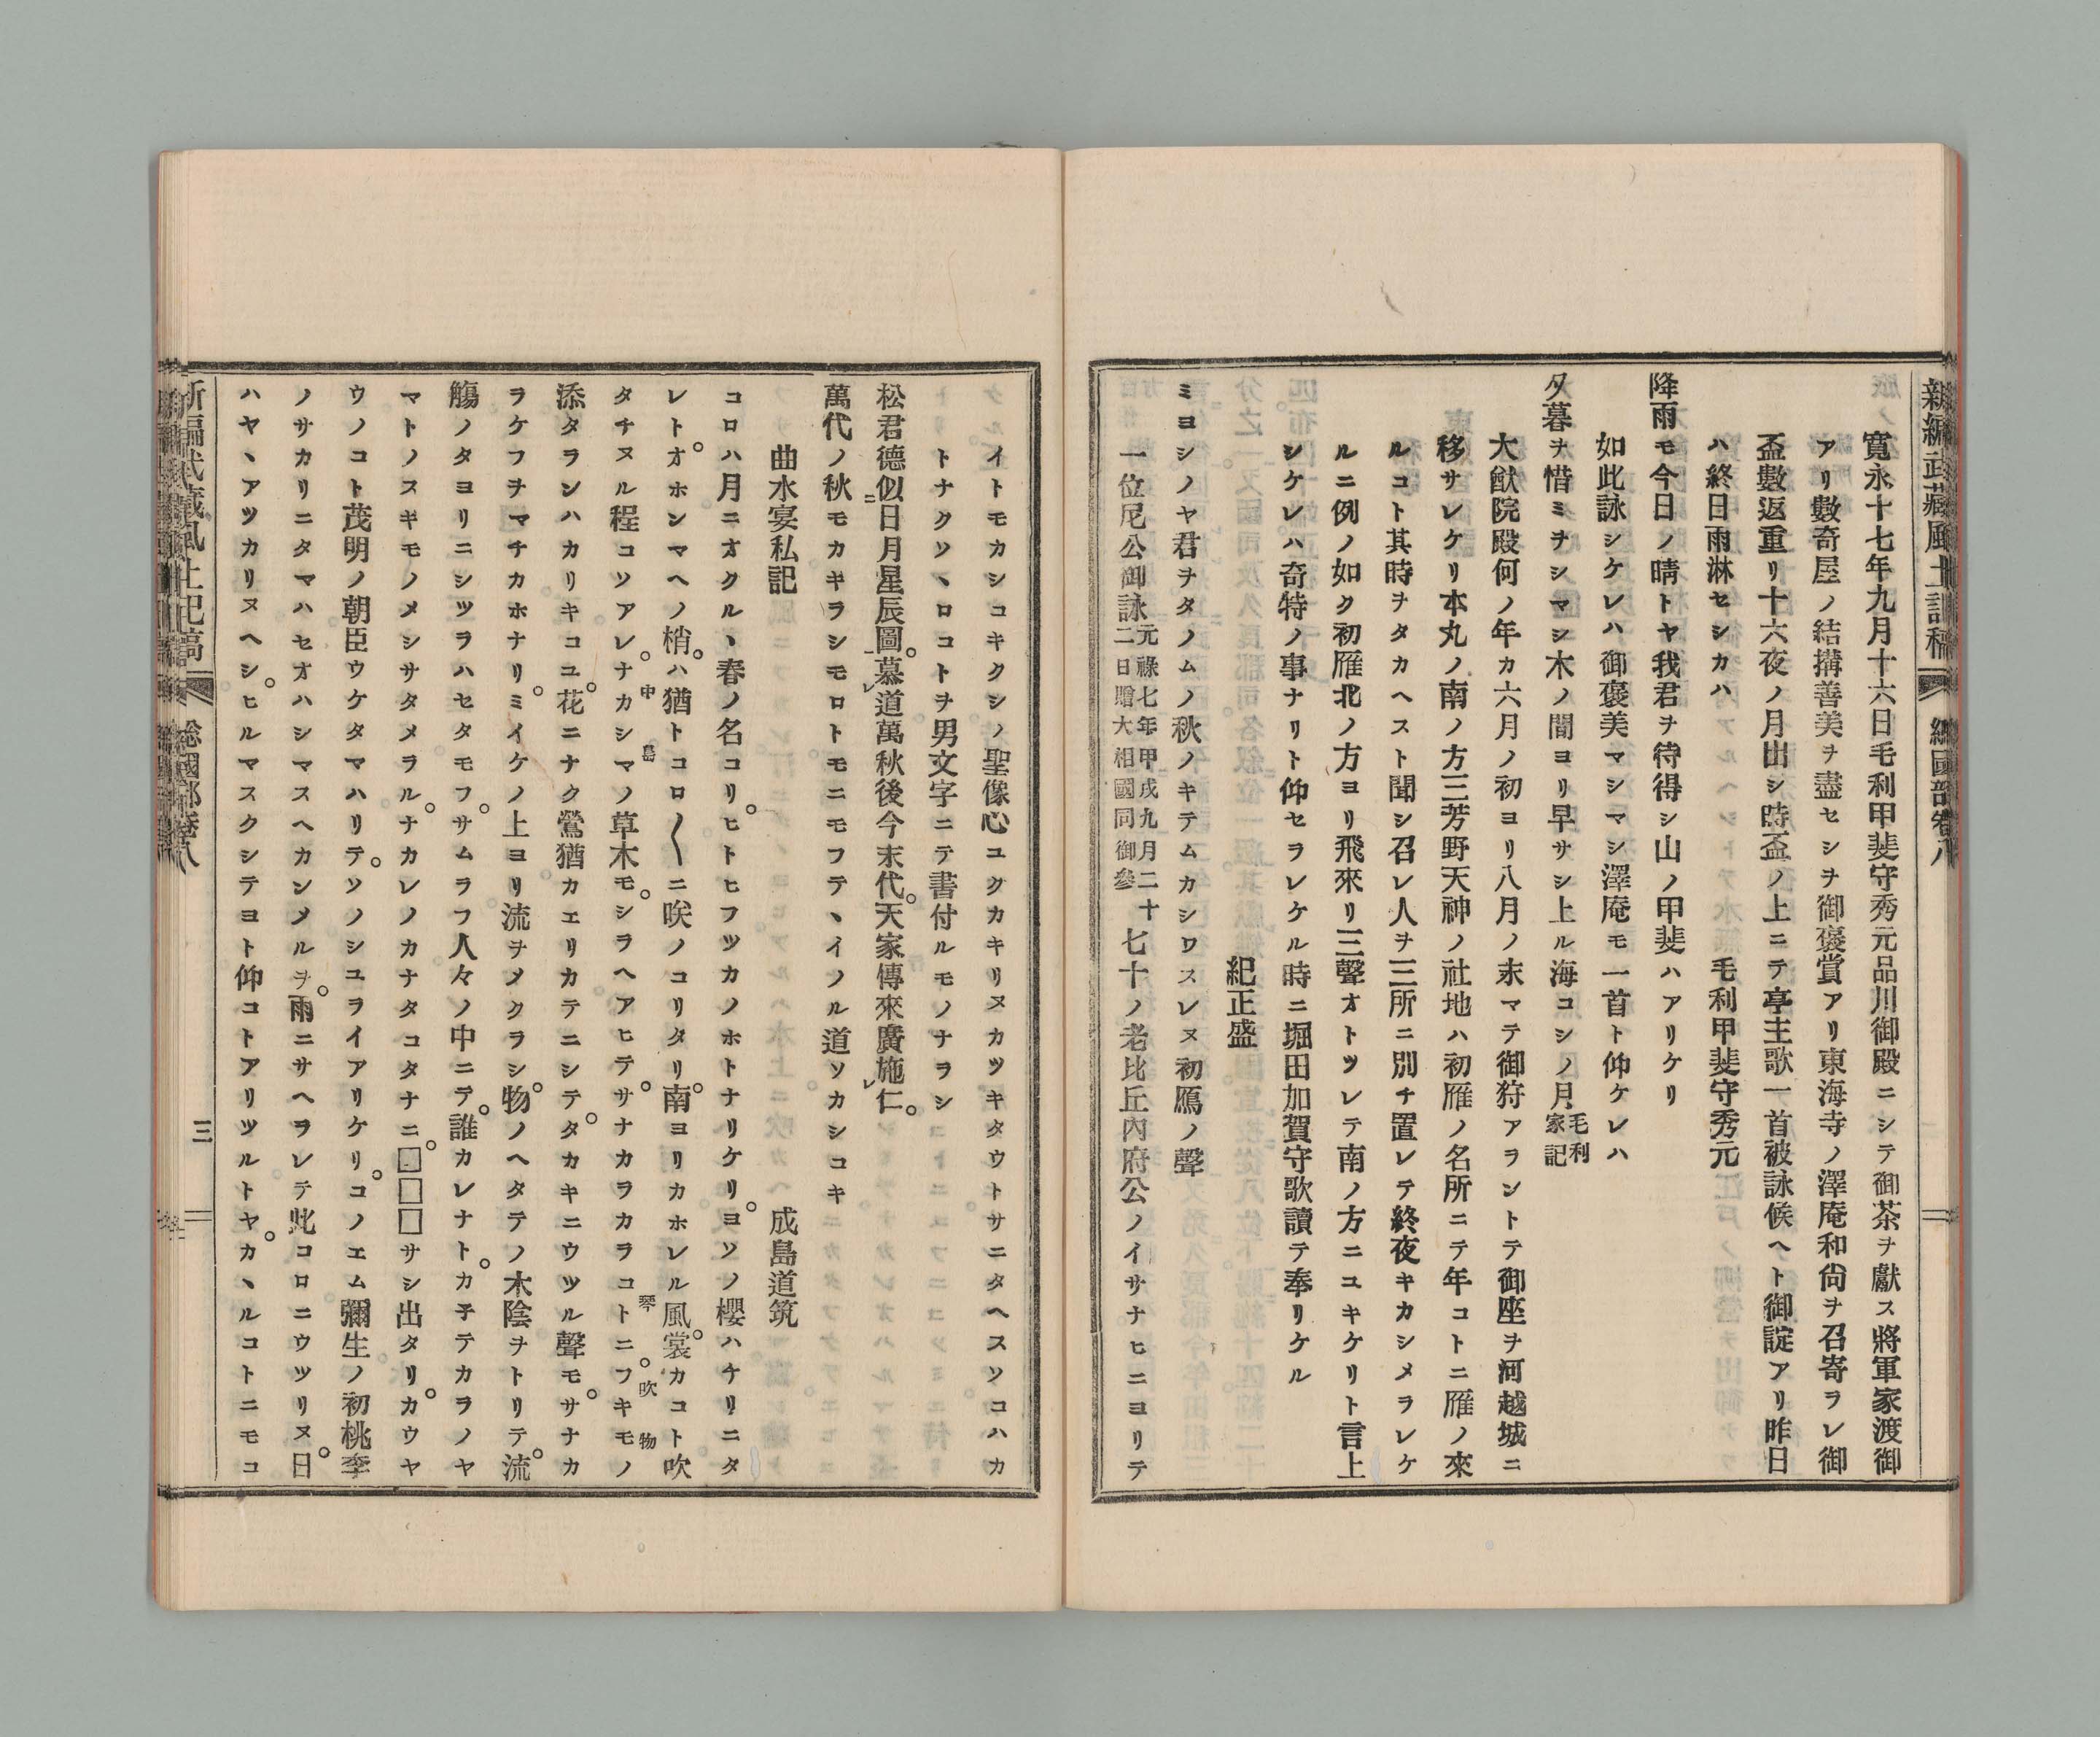 新編武藏風土記稿 總國部卷八
寛永十七年九月十六日毛利甲斐守秀元品川御殿ニシテ御茶ヲ獻ス將軍家渡御
アリ數寄屋ノ結搆善美ヲ盡セシヲ御褒賞アリ東海寺ノ澤庵和尙ヲ召寄ヲレ御
盃數返重リ十六夜ノ月出シ時盃ノ上ニテ亭主歌一首被詠候ヘト御諚アリ昨日
ハ終日雨淋セシカハ 毛利甲斐守秀元
降雨モ今日ノ晴トヤ我君ヲ待得シ山ノ甲斐ハアリケリ
如此詠シケレハ御褒美マシマシ澤庵モ一首ト仰ケレハ
夕暮ヲ惜ミヲシマシ木ノ間ヨリ早サシ上ル海コシノ月毛利家記
大猷院殿何ノ年カ六月ノ初ヨリ八月ノ末マテ御狩アラントテ御座ヲ河越城ニ
移サレケリ本丸ノ南ノ方三芳野天神ノ社地ハ初雁ノ名所ニテ年コトニ雁ノ來
ルコト其時ヲタカヘスト聞シ召レ人ヲ三所ニ別チ置レテ終夜キカシメラレケ
ルニ例ノ如ク初雁北ノ方ヨリ飛來リ三聲オトツレテ南ノ方ニユキケリト言上
シケレハ奇特ノ事ナリト仰セラレケル時ニ堀田加賀守歌讀テ奉リケル
紀正盛
ミヨシノヤ君ヲタノムノ秋ノキテムカシワスレヌ初鴈ノ聲
一位尼公御詠元祿七年甲戌九月二十二日贈大相國同御參七十ノ老比丘內府公ノイサナヒニヨリテ
イトモカシコキクシノ聖像心ユクカキリヌカツキタウトサニタヘスソコハカ
トナクソヽロコトヲ男文字ニテ書付ルモノナヲシ
松君德似二日月星辰圖一。慕レ道萬秋後今末代。天家傳來廣施レ仁。
萬代ノ秋モカキラシモロトモニモフテヽイノル道ソカシコキ
曲水宴私記 成島道筑
コロハ月ニオクルヽ春ノ名コリ。ヒトヒフツカノホトナリケリ。ヨソノ櫻ハチリニタ
レト。オホンマヘノ梢。ハ猶トコロ〱ニ咲ノコリタリ。南ヨリカホレル風。裳カコト吹
タチヌル程コソアレ。ナカ中シマ島ノ草木モ。シラヘアヒテ。サナカヲカラコト琴ニ。フキ吹モノ物
添タランハカリキコユ。花ニナク鶯猶カエリカテニシテ。タカキニウツル聲モ。サナカ
ラケフヲマチカホナリ。ミイケノ上ヨリ流ヲメクラシ。物ノヘタテノ木陰ヲトリテ。流
觴ノタヨリニシツラハセタモフ。サムラフ人々ノ中ニテ。誰カレナト。カ子テカラノヤ
マトノスキモノメシサタメラル。ナカレノカナタコタナニ。□□□サシ出タリ。カウヤ
ウノコト茂明ノ朝臣ウケタマハリテ。ソノシユヲイアリケリ。コノエム彌生ノ初桃李
ノサカリニタマハセオハシマスヘカンメルヲ。雨ニサヘヲレテ此コロニウツリヌ。日
ハヤヽアツカリヌヘシ。ヒルマスクシテヨト仰コトアリツルトヤ。カヽルコトニモコ
新編武藏風土記稿 總國部卷八 三